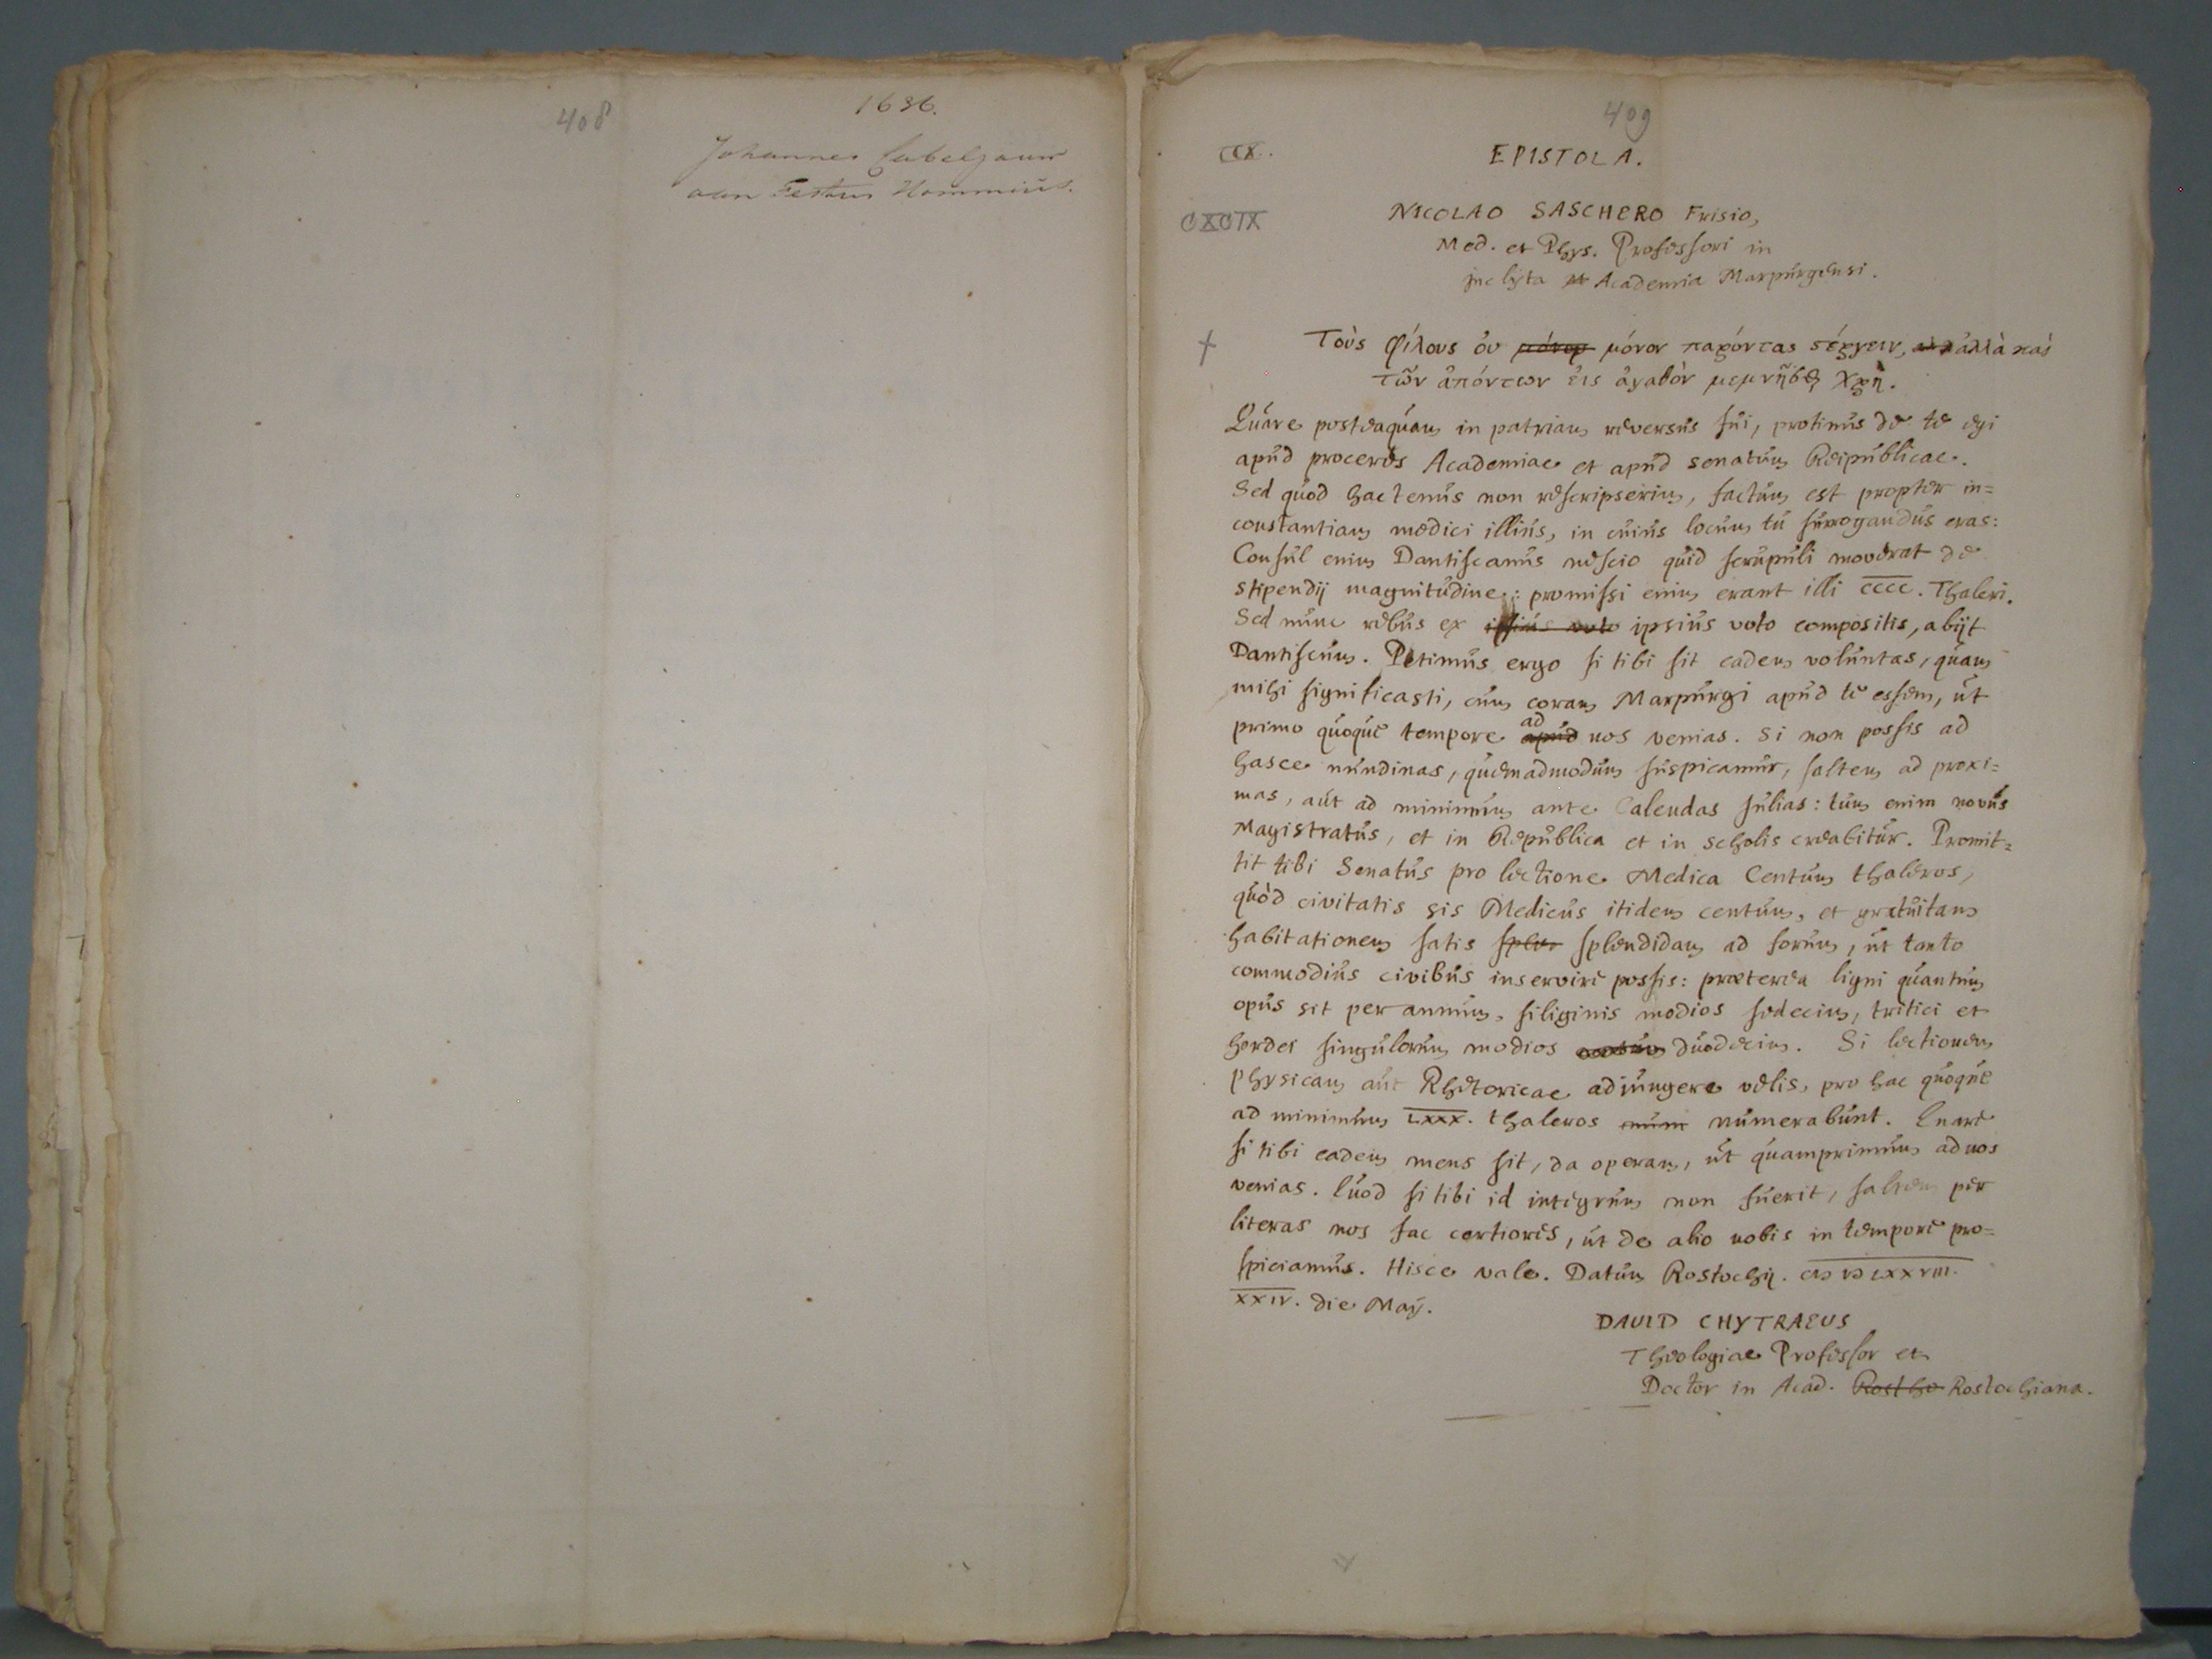 408
1636.
Johannes
aan Festus Hommius.
409
CCX.
EPISTOLA.
CXCIX
NICOLAO SASCHERO Frisio,
Med. et Phys. Professori in
inclÿta Academia Marpurgensi.
Τοὺς φίλους ὀυ μόνον μόνον παρόντας στέργειν, ἀλλὰ καὶ
τῶν ἀπόντων ἐις ἀγαθὸν μεμνῆσθαι χρὴ.
Quare posteaquam in patriam reversus fui, protinus de te egi
apud proceres Academiae et apud senatum Reipublicae.
Sed quod hactenus non rescripserim, factum est propter in=
constantiam medici illius, in cuius locum tu surrogandus eras:
Consul enim Dantiscanus nescio quid scrupuli moverat de
stipendij magnitudine: promissi enim erant illi CCCC. Thaleri.
Sed nunc rebus ex ipsius voto ipsius voto compositis, abijt
Dantiscum. Petimus ergo si tibi sit eadem voluntas, quam
mihi significasti, cum coram Marpurgi apud te essem, ut
primo quoque tempore apud ad nos venias. Si non possis ad
hasce nundinas, quemadmodum suspicamur, saltem ad proxi=
mas, aut ad minimum ante Calendas Julias: tum enim novus
Magistratus, et in Republica et in scholis creabitur. Promit=
tit tibi Senatus pro lectione Medica Centum thaleros,
quòd civitatis sis Medicus itidem centum, et gratuitam
habitationem satis splen splendidam ad forum, ut tanto
commodius civibus inservire possis: præterea ligni quantum
opus sit per annum, siliginis modios sedecim, tritici et
hordei singulorum modios duodecim. Si lectionem
physicam aut Rhetoricae adjungere velis, pro hac quoque
ad minimum LXXX. thaleros num numerabunt. Quare
si tibi eadem mens sit, da operam, ut quamprimum ad nos
venias. Quod si tibi id integrum non fuerit, saltem per
literas nos fac certiores, ut de alio nobis in tempore pro=
spiciamus. Hisce vale. Datum Rostochij. CIↃ IↃ LXXVIII.
XXIV. die Maij.
DAVID CHYTRAEUS
Theologiae Professor et
Doctor in Acad. Rostho Rostochiana.